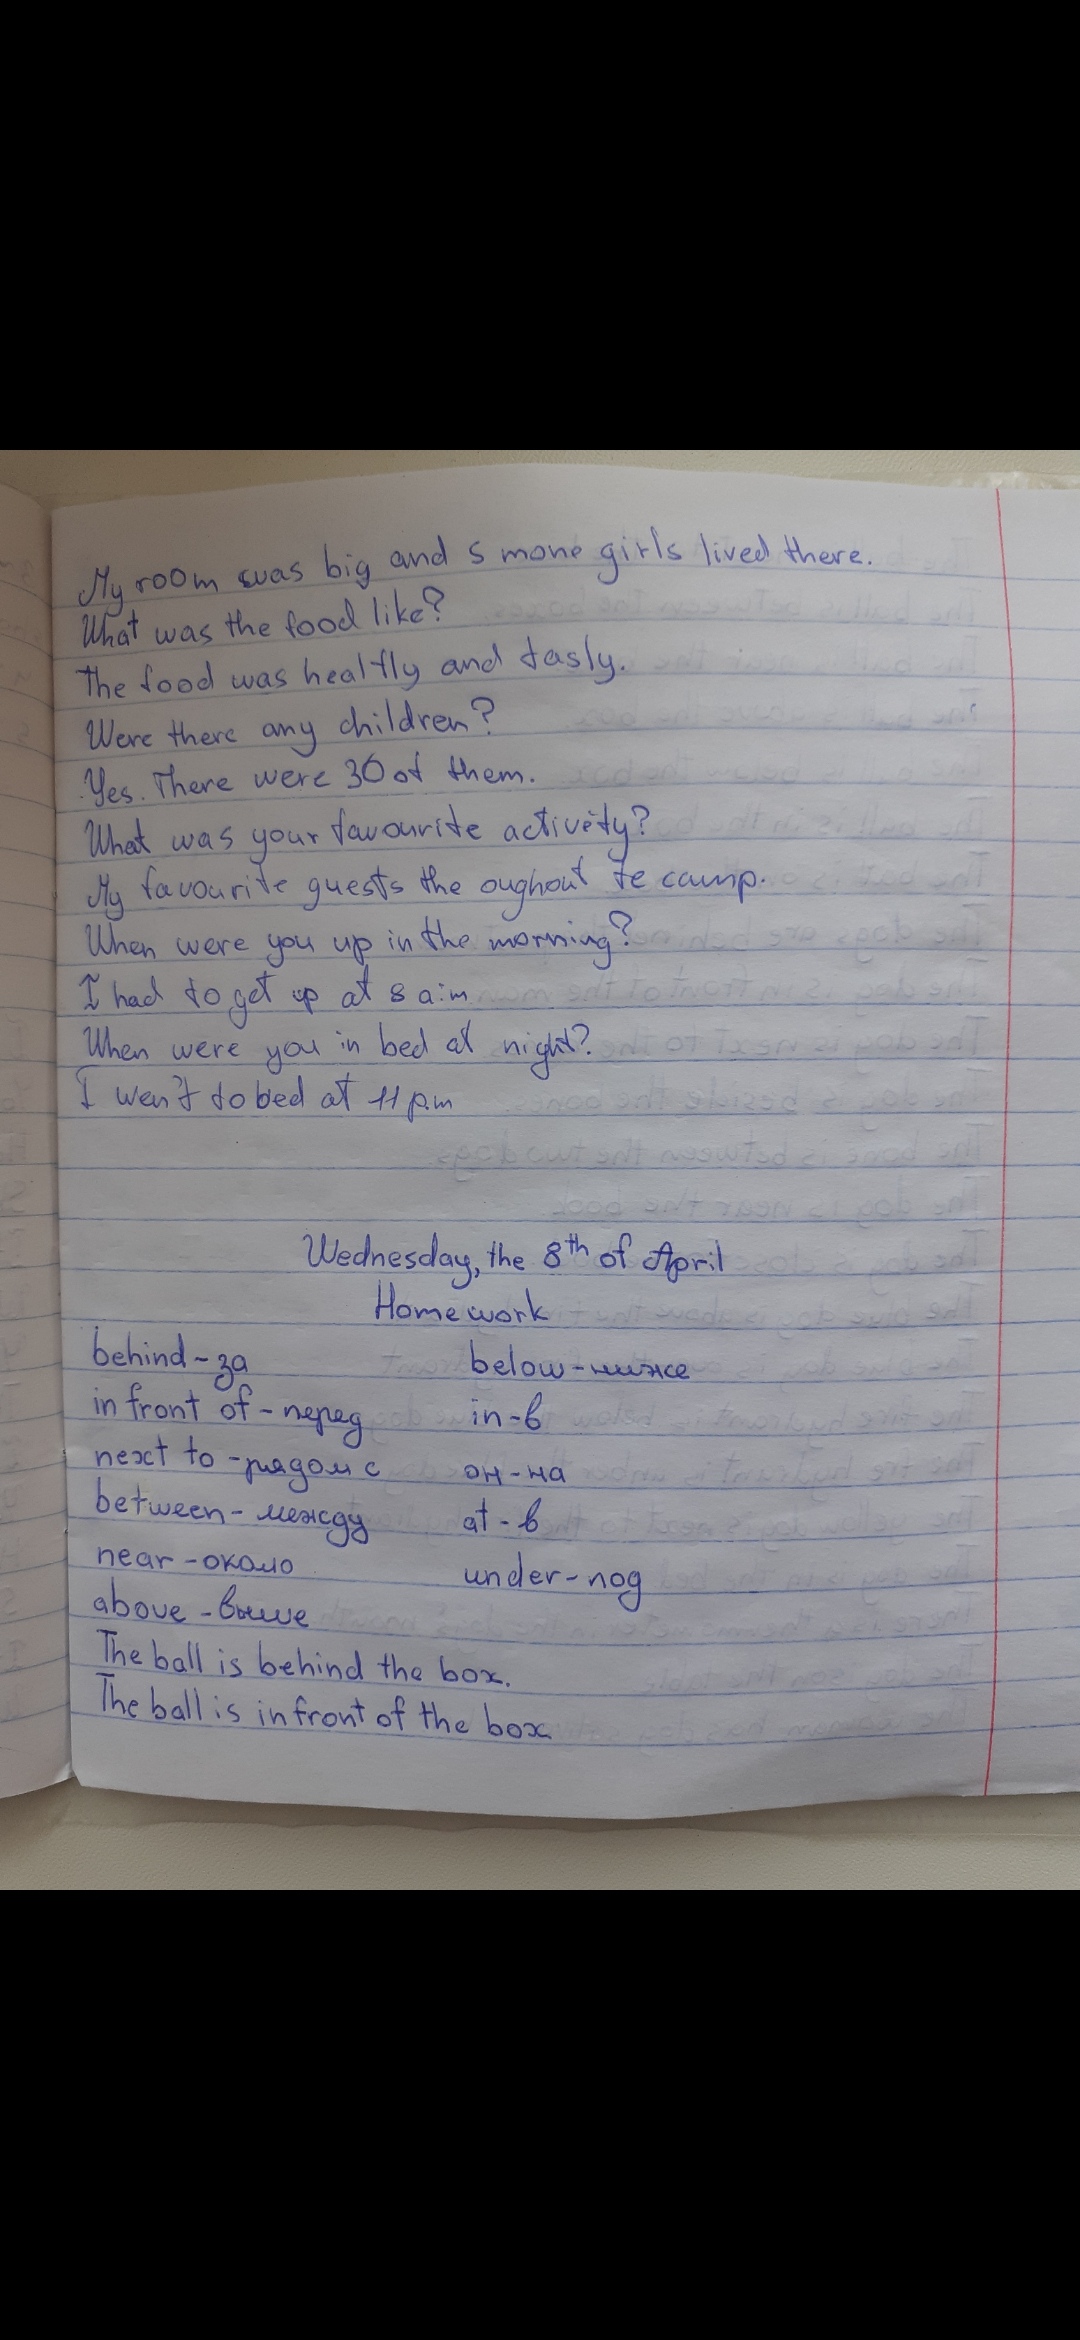 My room was big and 5 mone girls lived there.
What was the food like?
The food was healfly and tasly.
Were there any children?
Yes. There were 30 of them.
What was your favourite activety?
My favourite guests the oughout te camp.
When were you up in the morning?
I had to get up at 8 a.m
When were you in bed at night?
I wen't to bed at 11 p.m
Wednesday, the 8th of April
Homework
behind - за below - ниже
in front of - перед in - в
next to - рядом с он - на
between - между at - в
near - около under - под
above - выше
The ball is behind the box.
The ball is in front of the box